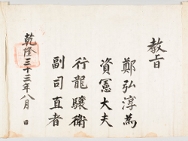 教旨
鄭弘淳為
資憲大夫
行龍驤衛
副司直者
乾隆三十三年八月 日